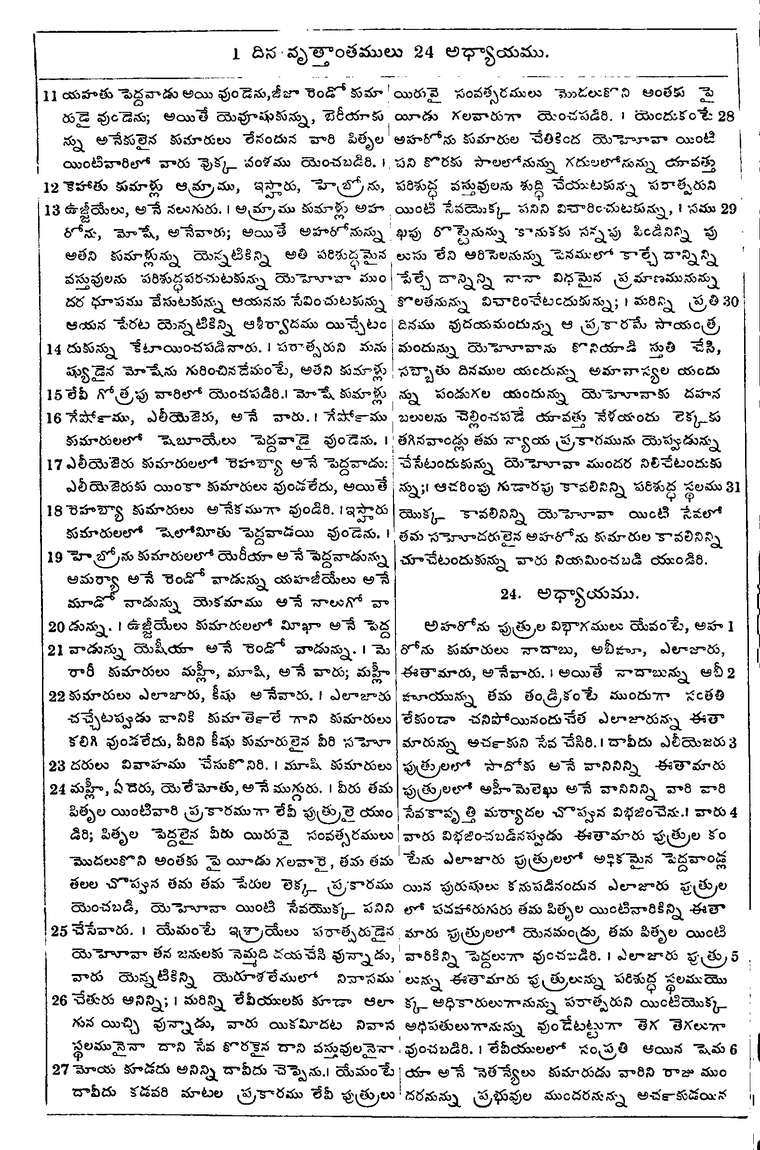 1 దిన వృత్తాంతములు 24 అధ్యాయము.
11 యహతు పెద్దవాడు అయి వుండెను, జీజా రెండో కుమా
రుడై వుండెను; అయితే యెవూషుకున్ను, బెరీయాకు
న్ను అనేకులైన కుమారులు లేనందున వారి పితృల
యింటివారిలో వారు వొక్క వంశము యెంచబడిరి. ।
12 కెహాతు కుమాళ్లు అమ్రాము, ఇస్హారు, హెబ్రోను,
13 ఉజ్జీయేలు, అనే నలుగురు. । అమ్రాము కుమాళ్లు అహ
రోను, మోషే, అనేవారు; అయితే అహరోనున్ను
అతని కుమాళ్లున్ను యెన్నటికిన్ని అతి పరిశుద్ధమైన
వస్తువులను పరిశుద్ధపరచుటకున్ను యెహోవా ముం
దర ధూపము వేసుటకున్ను ఆయనను సేవించుటకున్ను
ఆయన పేరట యెన్నటికిన్ని ఆశీర్వాదము యిచ్చేటం
14 దుకున్ను కేటాయించపడినారు. । పరాత్పరుని మను
ష్యుడైన మోషేను గురించినదేమంటే, అతని కుమాళ్లు
15 లేవీ గోత్రపు వారిలో యెంచపడిరి. । మోషే కుమాళ్లు
16 గేర్షోము, ఎలీయెజెరు, అనే వారు. । గేర్షోము
కుమారులలో షెబూయేలు పెద్దవాడై వుండెను. ।
17 ఎలీయెజెరు కుమారులలో రెహబ్యా అనే పెద్దవాడు:
ఎలీయెజెరుకు యింకా కుమారులు వుండలేదు, అయితే
18 రెహబ్యా కుమారులు అనేకముగా వుండిరి. । ఇస్హారు
కుమారులలో షెలోమీతు పెద్దవాడయి వుండెను. ।
19 హెబ్రోను కుమారులలో యెరీయా అనే పెద్దవాడున్ను
అమర్యా అనే రెండో వాడున్ను యహజీయేలు అనే
మూడో వాడున్ను యెకమాము అనే నాలుగో వా
20 డున్ను. । ఉజ్జీయేలు కుమారులలో మీఖా అనే పెద్ద
21 వాడున్ను యెషీయా అనే రెండో వాడున్ను. । మె
రారీ కుమారులు మహ్లీ, మూషి, అనే వారు; మహ్లీ
22 కుమారులు ఎలాజారు, కీషు అనేవారు. । ఎలాజారు
చచ్చేటప్పుడు వానికి కుమార్తెలే గాని కుమారులు
కలిగి వుండలేదు, వీరిని కీషు కుమారులైన వీరి సహో
23 దరులు వివాహము చేసుకొనిరి. । మూషి కుమారులు
24 మహ్లీ, ఏదెరు, యెలేమోతు, అనే ముగ్గురు. । వీరు తమ
పితృల యింటివారి ప్రకారముగా లేవీ పుత్రులై యుం
డిరి; పితృల పెద్దలైన వీరు యిరువై సంవత్సరములు
మొదలుకొని అంతకు పై యీడు గలవారై, తమ తమ
తలల చొప్పున తమ తమ పేరుల లెక్క ప్రకారము
యెంచబడి, యెహోవా యింటి సేవయొక్క పనిని
25 చేసేవారు. । యేమంటే ఇశ్రాయేలు పరాత్పరుడైన
యెహోవా తన జనులకు నెమ్మది దయచేసి వున్నాడు,
వారు యెన్నటికిన్ని యెరూశలేములో నివాసము
26 చేతురు అనిన్ని; । మరిన్ని లేవీయులకు కూడా ఆలా
గున యిచ్చి వున్నాడు, వారు యికమీదట నివాస
స్థలమునైనా దాని సేవ కొరకైన దాని వస్తువులనైనా
27 మోయ కూడదు అనిన్ని దావీదు చెప్పెను. । యేమంటే
దావీదు కడవరి మాటల ప్రకారము లేవీ పుత్రులు
యిరువై సంవత్సరములు మొదలుకొని అంతకు పై
యీడు గలవారుగా యెంచపడిరి. । యెందుకంటే 28
అహరోను కుమారుల చేతికింద యెహోవా యింటి
పని కొరకు సాలలోనున్ను గదులలోనున్ను యావత్తు
పరిశుద్ధ వస్తువులను శుద్ధి చేయుటకున్ను పరాత్పరుని
యింటి సేవయొక్క పనిని విచారించుటకున్ను, । సము 29
ఖపు రొట్టెనున్ను కానుకకు సన్నపు పిండినిన్ని పు
లుసు లేని అరిసెలనున్ను పెనములో కాల్చే దాన్నిన్ని
పేల్చే దాన్నిన్ని నానా విధమైన ప్రమాణమునున్ను
కొలతనున్ను విచారించేటందుకున్ను; । మరిన్ని ప్రతి 30
దినము వుదయమందున్ను ఆ ప్రకారమే సాయంత్ర
మందున్ను యెహోవాను కొనియాడి స్తుతి చేసి,
సబ్బాతు దినముల యందున్ను అమావాస్యల యందు
న్ను పండుగల యందున్ను యెహోవాకు దహన
బలులను చెల్లించపడే యావత్తు వేళయందు లెక్కకు
తగినవాండ్లు తమ న్యాయ ప్రకారమును యెప్పుడున్ను
చేసేటందుకున్ను యెహోవా ముందర నిలిచేటందుకు
న్ను; । ఆచరింపు గుడారపు కావలినిన్ని పరిశుద్ధ స్థలము 31
యొక్క కావలినిన్ని యెహోవా యింటి సేవలో
తమ సహోదరులైన అహరోను కుమారుల కావలినిన్ని
చూచేటందుకున్ను వారు నియమించబడి యుండిరి.
24. అధ్యాయము.
అహరోను పుత్రుల విభాగములు యేవంటే, అహ 1
రోను కుమారులు నాదాబు, అబీహూ, ఎలాజారు,
ఈతామారు, అనేవారు. । అయితే నాదాబున్ను అబీ 2
హూయున్ను తమ తండ్రికంటే ముందుగా సంతతి
లేకుండా చనిపోయినందుచేత ఎలాజారున్ను ఈతా
మారున్ను అర్చకుని సేవ చేసిరి. । దావీదు ఎలీయెజరు 3
పుత్రులలో సాదోకు అనే వానినిన్ని ఈతామారు
పుత్రులలో అహీమెలెఖు అనే వానినిన్ని వారి వారి
సేవకావృత్తి మర్యాదల చొప్పున విభజించెను. । వారు 4
వారు విభజించబడినప్పుడు ఈతామారు పుత్రుల కం
టేను ఎలాజారు పుత్రులలో అధికమైన పెద్దవాండ్ల
యిన పురుషులు కనుపడినందున ఎలాజారు పుత్రుల
లో పదహారుగురు తమ పితృల యింటివారికిన్ని ఈతా
మారు పుత్రులలో యెనమండ్రు, తమ పితృల యింటి
వారికిన్ని పెద్దలుగా వుంచబడిరి. । ఎలాజారు పుత్రు 5
లున్ను ఈతామారు పుత్రులున్ను పరిశుద్ధ స్థలముయొ
క్క అధికారులుగానున్ను పరాత్పరుని యింటియొక్క
అధిపతులుగానున్ను వుండేటట్టుగా తెగ తెగలుగా
వుంచబడిరి. । లేవీయులలో సంప్రతి అయిన షెమ 6
యా అనే నెతన్యేలు కుమారుడు వారిని రాజు ముం
దరనున్ను ప్రభువుల ముందరనున్ను అర్చకుడయిన